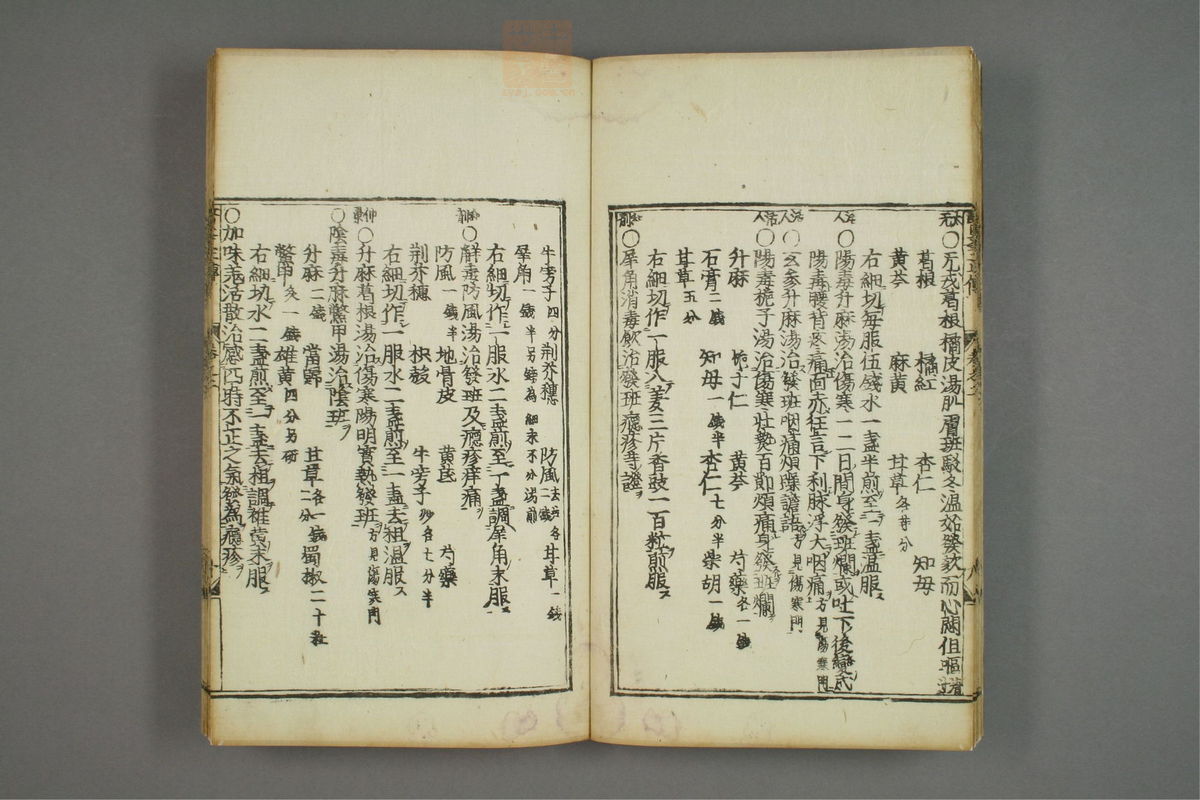 ○元戎葛根橘皮湯肌膚班駁冬溫始發欬而心悶但嘔者
葛根 橘紅 杏仁 知母
黄芩 麻黄 甘草各半分
右細切每服伍錢水一盞半煎至一盞溫服
活人○陽毒升麻湯治傷寒一二日間身發班爛或吐下後變成
陽毒腰背疼痛面赤狂言下利脉浮大咽痛方見傷寒門
活人○玄參升麻湯治發班咽痛煩躁譫語方見傷寒門
活人○陽毒梔子湯治傷寒壯熱百節煩痛身發班爛
升麻 梔子仁 黄芩 芍藥各一錢
石膏二錢 知母一錢半 杏仁七分半 柴胡一錢
甘草五分
右細切作一服入姜三片香豉一百粒煎服
○犀角消毒飲治發班癮疹等證
牛蒡子四分 荆芥穗 防風各二錢 甘草一錢
犀角一錢半另鎊為細末不分湯煎
右細切作一服水二盞煎至一盞調犀角末服
○解毒防風湯治發班及癮疹痒痛
防風一錢半 地骨皮 黄芪 芍藥
荆芥穗 枳殼 牛蒡子炒各七分半
右細切作一服水二盞煎至一盞去柤溫服
仲景○升麻葛根湯治傷寒陽明實熱發班方見傷寒門
○陰毒升麻鱉甲湯治陰班
升麻二錢 當歸 甘草各一錢二分 蜀椒二十粒
鱉甲炙一錢 雄黄四分另研
右細切水二盞煎至一盞去柤調雄黄末服
○加味羌活散治感四時不正之氣發為癮疹